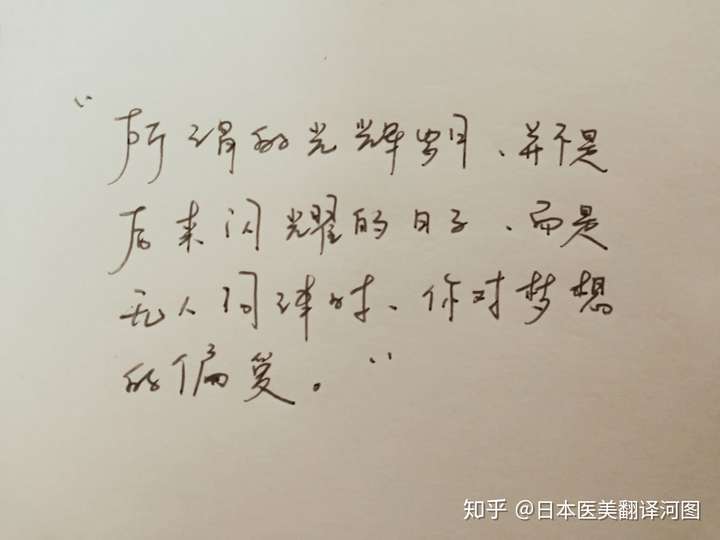 "所谓的光辉岁月、并不是
后来闪耀的日子、而是
无人问津时、你对梦想
的偏爱。"
知乎 @日本医美翻译河图